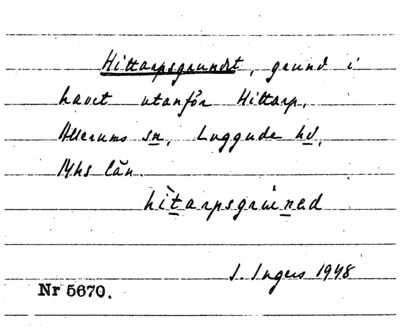 Hittarpsgrundet, grund i
havet utanför Hittarp,
Allerums sn, Luggude hd,
Mhs län.
hìtarpsgrúned
I. Ingers 1948
Nr 5670.